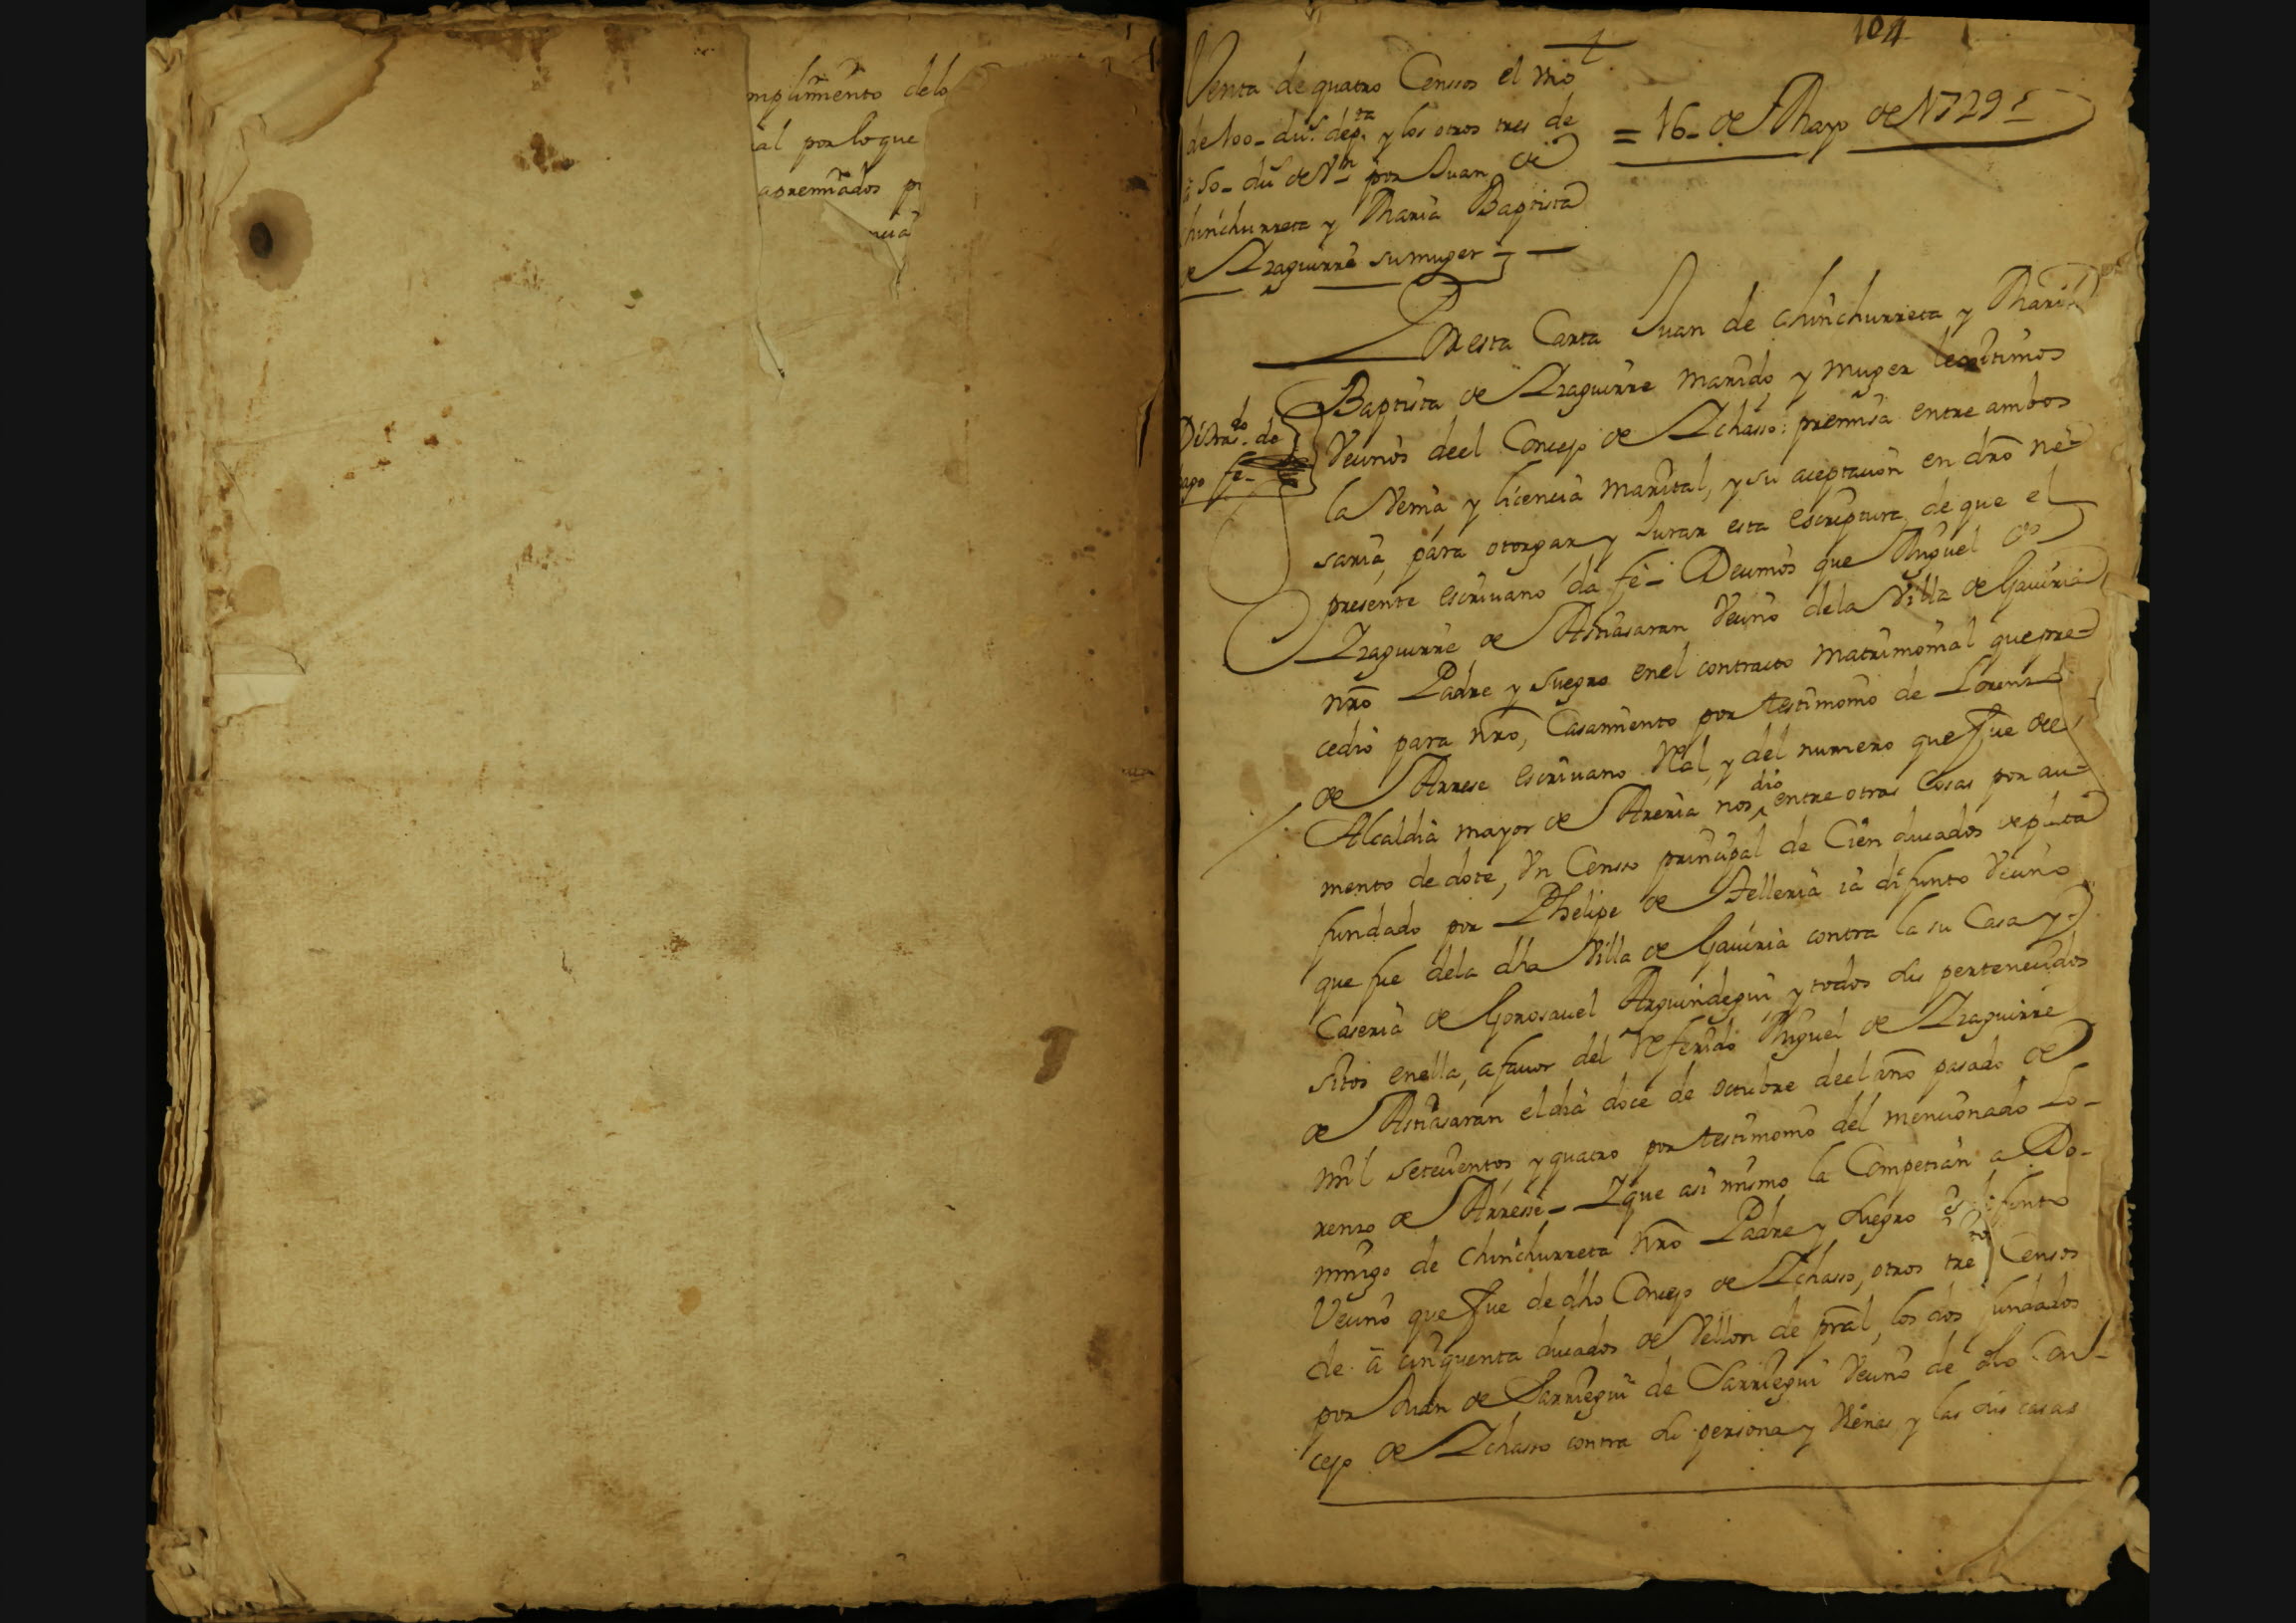 mplimiento delo
al por lo que
apremiados p
ncia
104
Venta de quatro Censos el vno
de 100_ dus. de pta. y los otros tres de
a 50_ dus de Vn por Juan de
chinchurreta y Maria Baptista
de Yzaguirre su muger
= 16_ de Mayo de 1729
Por esta Carta Juan de chinchurreta y Maria
Baptista de Yzaguirre marido, y muger lexitimos
Vecinos deel Concejo de Ychasso: premisa entre ambos
la Venia y licencia marital, y su aceptacion en dro nece
saria, para otorgar y Jurar esta escriptura, de que el
presente escriuano da fe_ Decimos que Miguel de
Yzaguirre de Astiasaran Vecino dela Villa de Gauiria
nro Padre y Suegro enel contracto matrimonial que pre=
cedio para nro, Casamiento por testimonio de Lorenzo
de Arrese escriuano Ral, y del numero que fue deel
Alcaldia mayor de Areria nos dio entre otras Cosas por au=
mento de dote, Vn Censso principal de Cien ducados de plata
fundado por Phelipe de Telleria ia difunto Vecino
que fue dela dha Villa de Gauiria contra la su Casa y
Caseria de Gorosauel Arguindegui, y todos sus pertenecidos
sitos enella, a fauor del Referido Miguel de Yzaguirre
de Astiasaran el dia doce de octubre deel año pasado de
mil setecientos y quatro por testimonio del mencionado Lo_
renzo de Arresse_ Y que asi mismo la Competian a Do_
mingo de chinchurreta nro Padre y suegro difunto
Vecino que fue de dho Concejo de Ychasso, otros tres Censos
de a cinquenta ducados de Vellon de pral, los dos fundados
por Juan de Sarriegui de Sarriegui Vecino de dho Con_
cejo de Ychasso contra su persona y Vienes, y las sus casas
Distras.do do
ago fe_